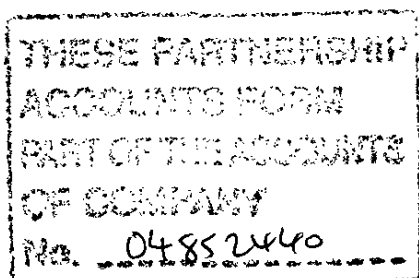 THESE PARTNERSHIP
ACCOUNTS FORM
PART OF THE ACCOUNTS
OF COMPANY
No. 04852440